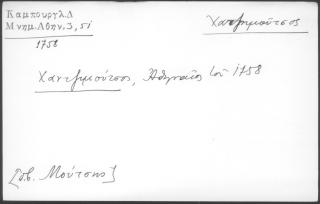 Καμπουργλ.Δ
Μνημ.Αθην.3, 51
1758
Χατζημοῦτσος
Χαντζιμούτσος, Ἀθηναῖος τοῦ 1758
[σβ. Μούτσης]